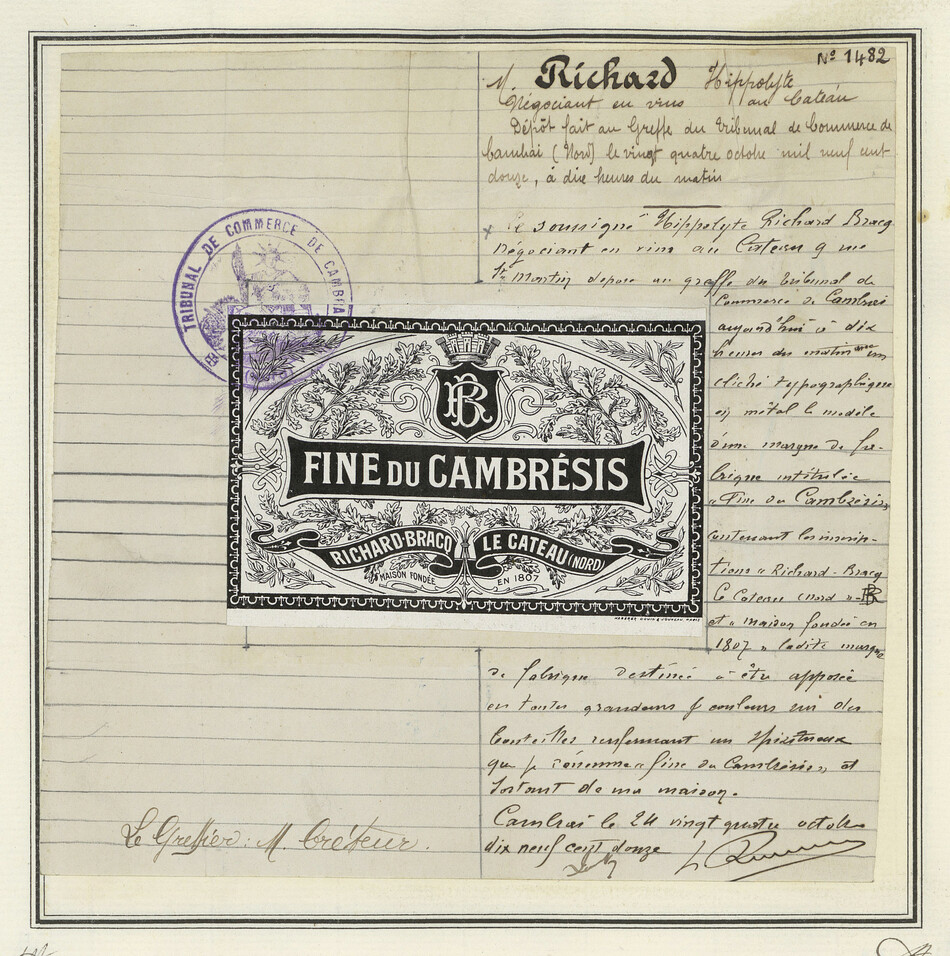 Nº 1482
M. Richard Hippolyte
Négociant en vins au Cateau
Dépôt fait au Greffe du Tribunal de Commerce de
Cambrai (Nord) le vingt quatre octobre mil neuf cent
douze, à dix heures du matin
Le soussigné Hippolyte Richard Bracq
négociant en vins au Cateau 9 rue
St Martin dépose au greffe du Tribunal de
Commerce de Cambrai
aujourd'hui à dix
heures du matin un
cliché typographique
en métal le modèle
d'une marque de fa-
brique intitulée
"Fine du Cambrésis"
contenant les inscrip-
tions "Richard-Bracq
Le Cateau (Nord)" "BR"
et "maison fondée en
1807" ladite marque
de fabrique destinée à être apposée
en toutes grandeurs & couleurs sur des
bouteilles renfermant un spiritueux
que je dénomme "fine du Cambrésis" et
sortant de ma maison.
Cambrai le 24 vingt quatre octobre
dix neuf cent douze
TRIBUNAL DE COMMERCE DE CAMBRAI
BR
FINE DU CAMBRÉSIS
RICHARD-BRACQ LE CATEAU (NORD)
MAISON FONDÉE EN 1807
Le Greffier: M. Créteur.